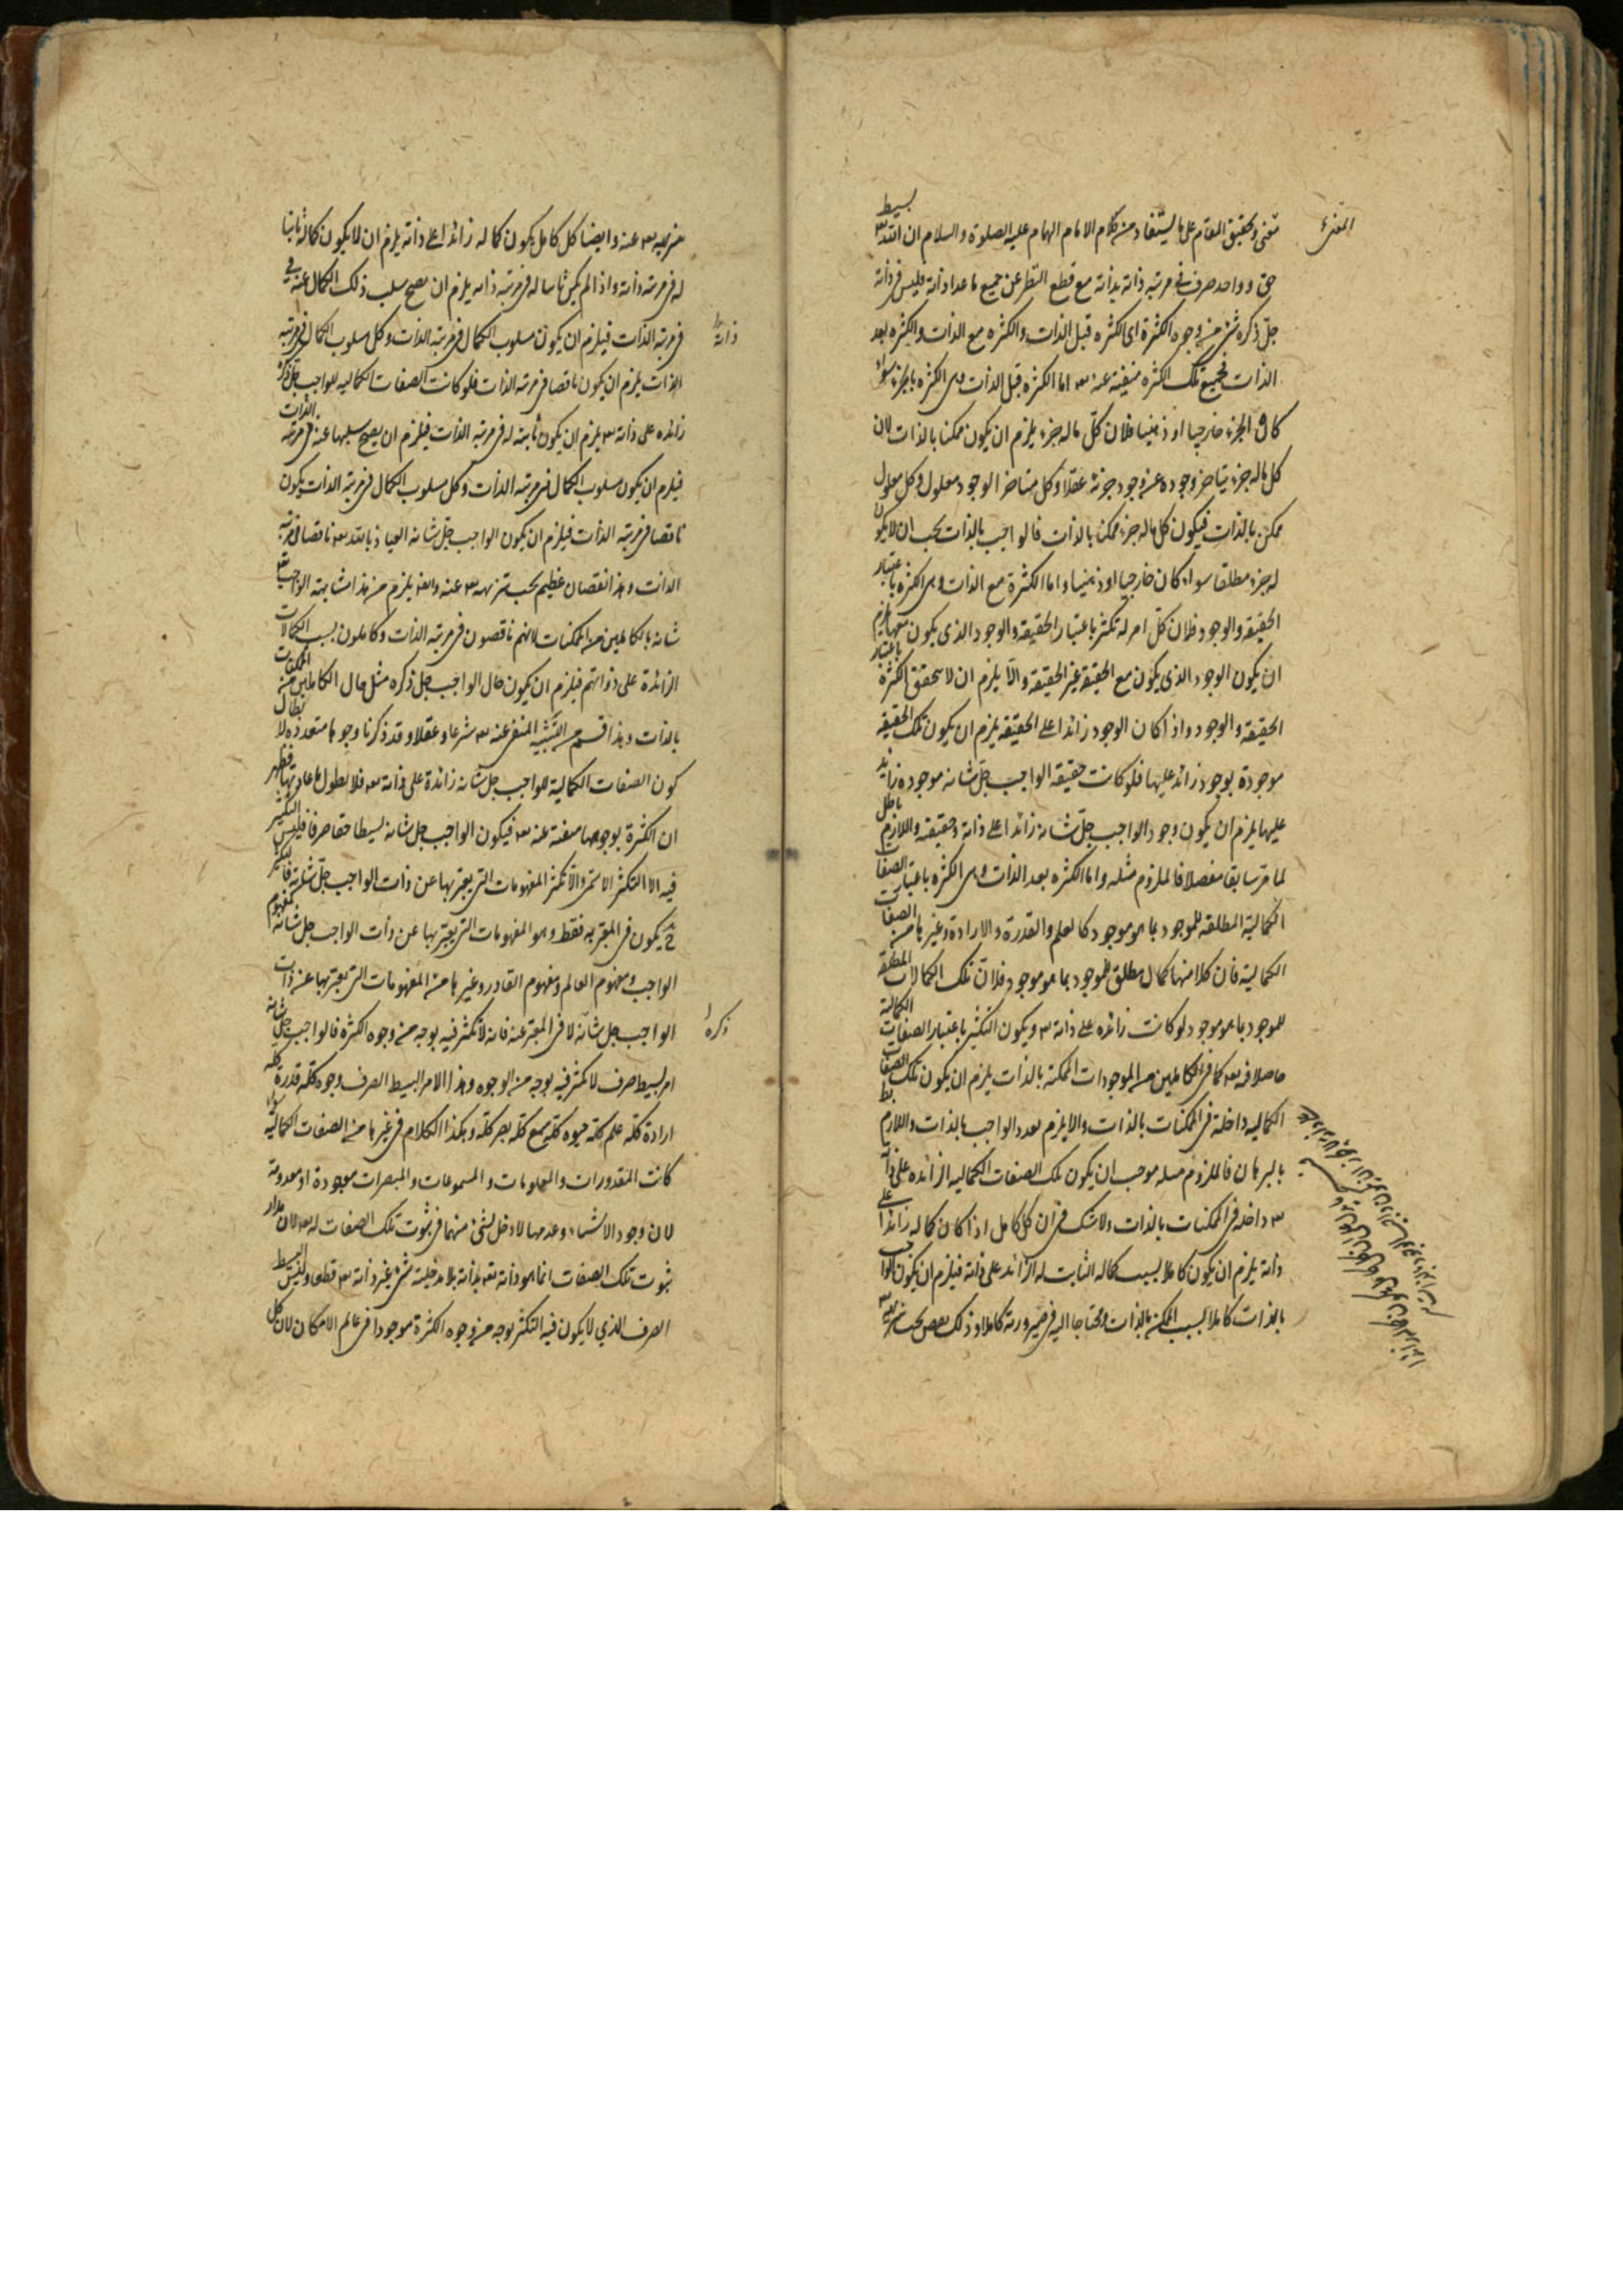 تغنى وتحقيق المقام على ما يستفاد من كلام الامام الهمام عليه الصلوة والسلام ان الله تعالى بسيط
حق وواحد صرف فى مرتبة ذاته بذاته مع قطع النظر عن جميع ما عدا ذاته فليس فى ذاته
جل ذكره شئ من وجوه الكثرة اى الكثره قبل الذات والكثره مع الذات والكثره بعد
الذات فجميع تلك الكثره منفية عنه تعـ اما الكثرة قبل الذات وهى الكثره بالجزء سواء
كان الجزء خارجيا او ذهنيا فلان كل ماله جزء يلزم ان يكون ممكنا بالذات لان
كل ماله جزء يتاخر وجوده عن وجود جزئه عقلا وكل متاخر الوجود معلول وكل معلول
ممكن بالذات فيكون كل ماله جزء ممكنا بالذات فالواجب بالذات يجب ان لا يكون
له جزء مطلقا سواء كان خارجيا او ذهنيا واما الكثرة مع الذات وهى الكثره باعتبار
الحقيقه والوجود فلان كل امر له تكثر باعتبار الحقيقه والوجود الذى يكون يلزم
ان يكون الوجود الذى يكون مع الحقيقة غير الحقيقه والا يلزم ان لا يتحقق الكثرة باعتبار
الحقيقه والوجود واذا كان الوجود زائدا على الحقيقة يلزم ان يكون تلك الحقيقه
موجودة بوجود زائد عليها فلو كانت حقيقه الواجب جل شانه موجوده زايد
عليها يلزم ان يكون وجود الواجب جل شانه زائدا على ذاته وحقيقته واللازم باطل
لما مر سابقا مفصلا فالملزوم مثله واما الكثره بعد الذات وهى الكثره باعتبار الصفات
الكمالية المطلقه للموجود بما هو موجود كالعلم والقدرة والارادة وغيرها من الصفات
الكمالية فان كلا منها كمال مطلق للموجود بما هو موجود فلان تلك الكمالات المطلقه
للموجود بما هو موجود لو كانت زائده على ذاته تعـ ويكون التكثر باعتبار الصفات الكمالية
حاصلا فيه تعـ كما فى الكاملين من الموجودات الممكنه بالذات يلزم ان يكون تلك الصفات
الكماليه داخلة فى الممكنات بالذات والا يلزم تعدد الواجب بالذات واللازم بط
بالبرهان فالملزوم مثله موجب ان يكون تلك الصفات الكماليه الزائده على ذاته
تعـ داخله فى الممكنات بالذات ولا شك فى ان كل كامل اذا كان كماله زائدا على
ذاته يلزم ان يكون كاملا بسبب كماله الثابت له الزائد على ذاته فيلزم ان يكون الواجب
بالذات كاملا بسبب الممكن بالذات ومحتاجا اليه فى صيرورته كاملا وذلك نقص يجب تنزيهه
تنزيهه تعـ عنه وايضا كل كامل يكون كماله زائدا على ذاته يلزم ان لا يكون كماله ثابتا
له فى مرتبة ذاته واذا لم يكن ثابتا له فى مرتبة ذاته يلزم ان يصح سلب ذلك الكمال عنه فى
فى مرتبة الذات فيلزم ان يكون مسلوب الكمال فى مرتبة الذات وكل مسلوب الكمال فى مرتبه
ذاته
الذات يلزم ان يكون ناقصا فى مرتبه الذات فلو كانت الصفات الكماليه للواجب جل ذكره
زائده على ذاته تعـ يلزم ان يكون ثابتة له فى مرتبة الذات فيلزم ان يصح سلبها عنه فى مرتبه الذات
فيلزم ان يكون مسلوب الكمال فى مرتبه الذات وكل مسلوب الكمال فى مرتبه الذات يكون
ناقصا فى مرتبه الذات فيلزم ان يكون الواجب جل شانه العياذ بالله تعـ ناقصا فى مرتبه
الذات وهذا نقصان عظيم يجب تنزيهه تعـ عنه وايضا يلزم من هذا مشابهة الواجب
شانه بالكاملين من الممكنات لانهم ناقصون فى مرتبه الذات وكاملون بسبب الكمالات
الزائدة على ذواتهم فيلزم ان يكون حال الواجب جل ذكره مثل حال الكاملين من الممكنات
بالذات وهذا قسم من التشبيه المنفى عنه تعـ شرعا وعقلا وقد ذكرنا وجوها متعدده لابطال
كون الصفات الكمالية للواجب جل شانه زائدة على ذاته تعـ فلا نطول باعادتها فظهر
ان الكثرة بوجوهها منفية عنه تعـ فيكون الواجب جل شانه بسيطا حقا صرفا فليس التكثر
فيه الا التكثر الاسمى والا تكثر المفهومات التى يعبر بها عن ذات الواجب جل شانه فالتكثر
ح يكون فى المعبر به فقط وهو المفهومات التى يعبر بها عن ذات الواجب جل شانه كمفهوم
الواجب ومفهوم العالم ومفهوم القادر وغيرها من المفهومات التى يعبر بها عن ذات
الواجب جل شانه لا فى المعبر عنه فانه لا تكثر فيه بوجه من وجوه الكثره فالواجب جل شانه
ذكره
امر بسيط صرف لا تكثر فيه بوجه من الوجوه وهذا الامر البسيط الصرف وجود كله قدرة كله
ارادة كله علم كله حيوة كله سمع كله بصر كله وهكذا الكلام فى غيرها من الصفات الكمالية سواء
كانت المقدورات والمعلومات والمسموعات والمبصرات موجودة او معدومة
لان وجود الاشياء وعدمها لا دخل لشئ منهما فى ثبوت تلك الصفات له تعـ لان مدار
ثبوت تلك الصفات انما هو ذاته تعـ بذاته بلا مدخلية شئ غير ذاته تعـ قطعا وليس البسيط
الصرف الذى لا يكون فيه التكثر بوجه من وجوه الكثرة موجودا فى عالم الامكان لان كل